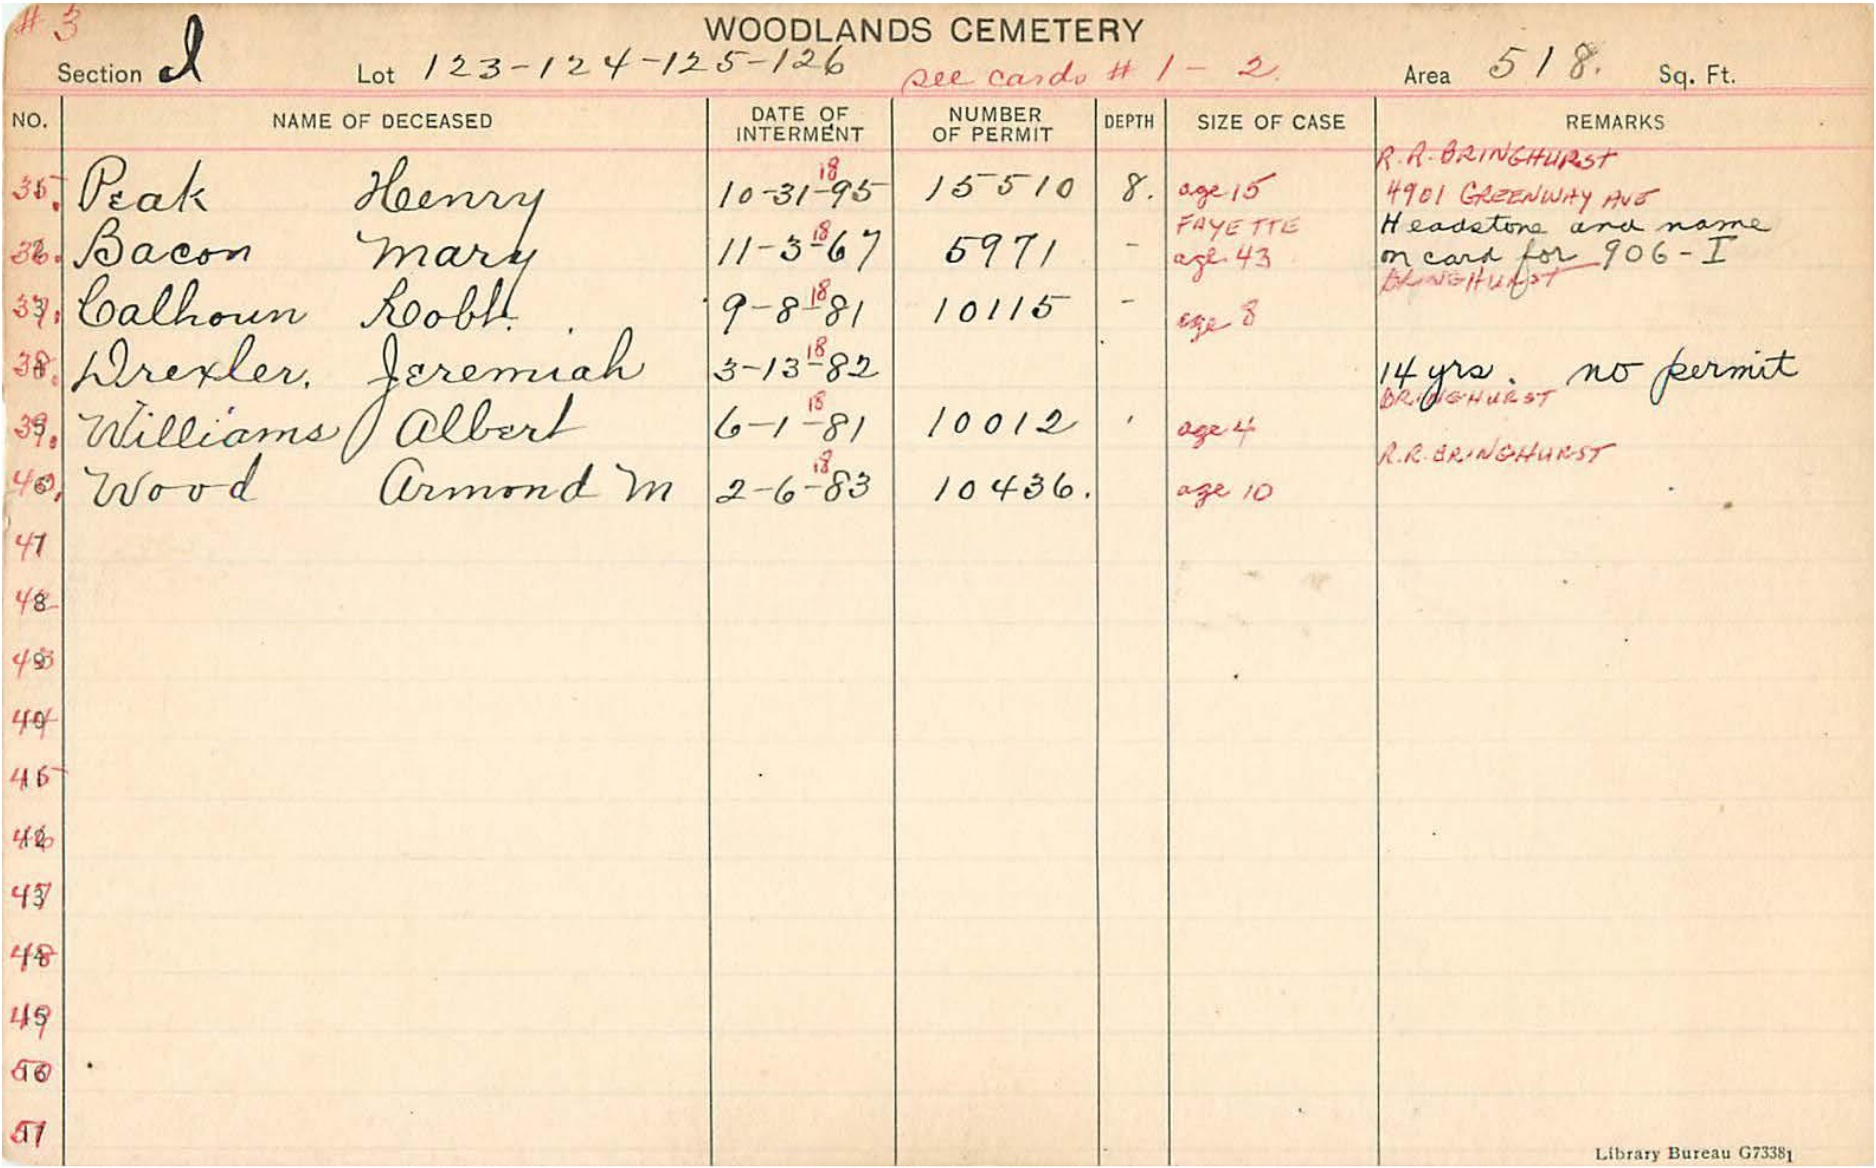 # 3
WOODLANDS CEMETERY
Section I Lot 123-124-125-126 see cards # 1 - 2. Area 518. Sq. Ft.
NO. NAME OF DECEASED DATE OF INTERMENT NUMBER OF PERMIT DEPTH SIZE OF CASE REMARKS
R.R. BRINGHURST
35. Peak Henry 10-31-1895 15510 8. age 15 4901 GREENWAY AVE
FAYETTE Headstone and name
36. Bacon Mary 11-3-1867 5971 - age 43 on card for 906-I
BRINGHURST
37. Calhoun Robt. 9-8-1881 10115 - age 8
38. Drexler, Jeremiah 3-13-1882 14 yrs. no permit
BRINGHURST
39. Williams Albert 6-1-1881 10012 age 4
R.R. BRINGHURST
40. Wood Armond M 2-6-1883 10436. age 10
41
42
43
44
45
46
47
48
49
50
51
Library Bureau G73381